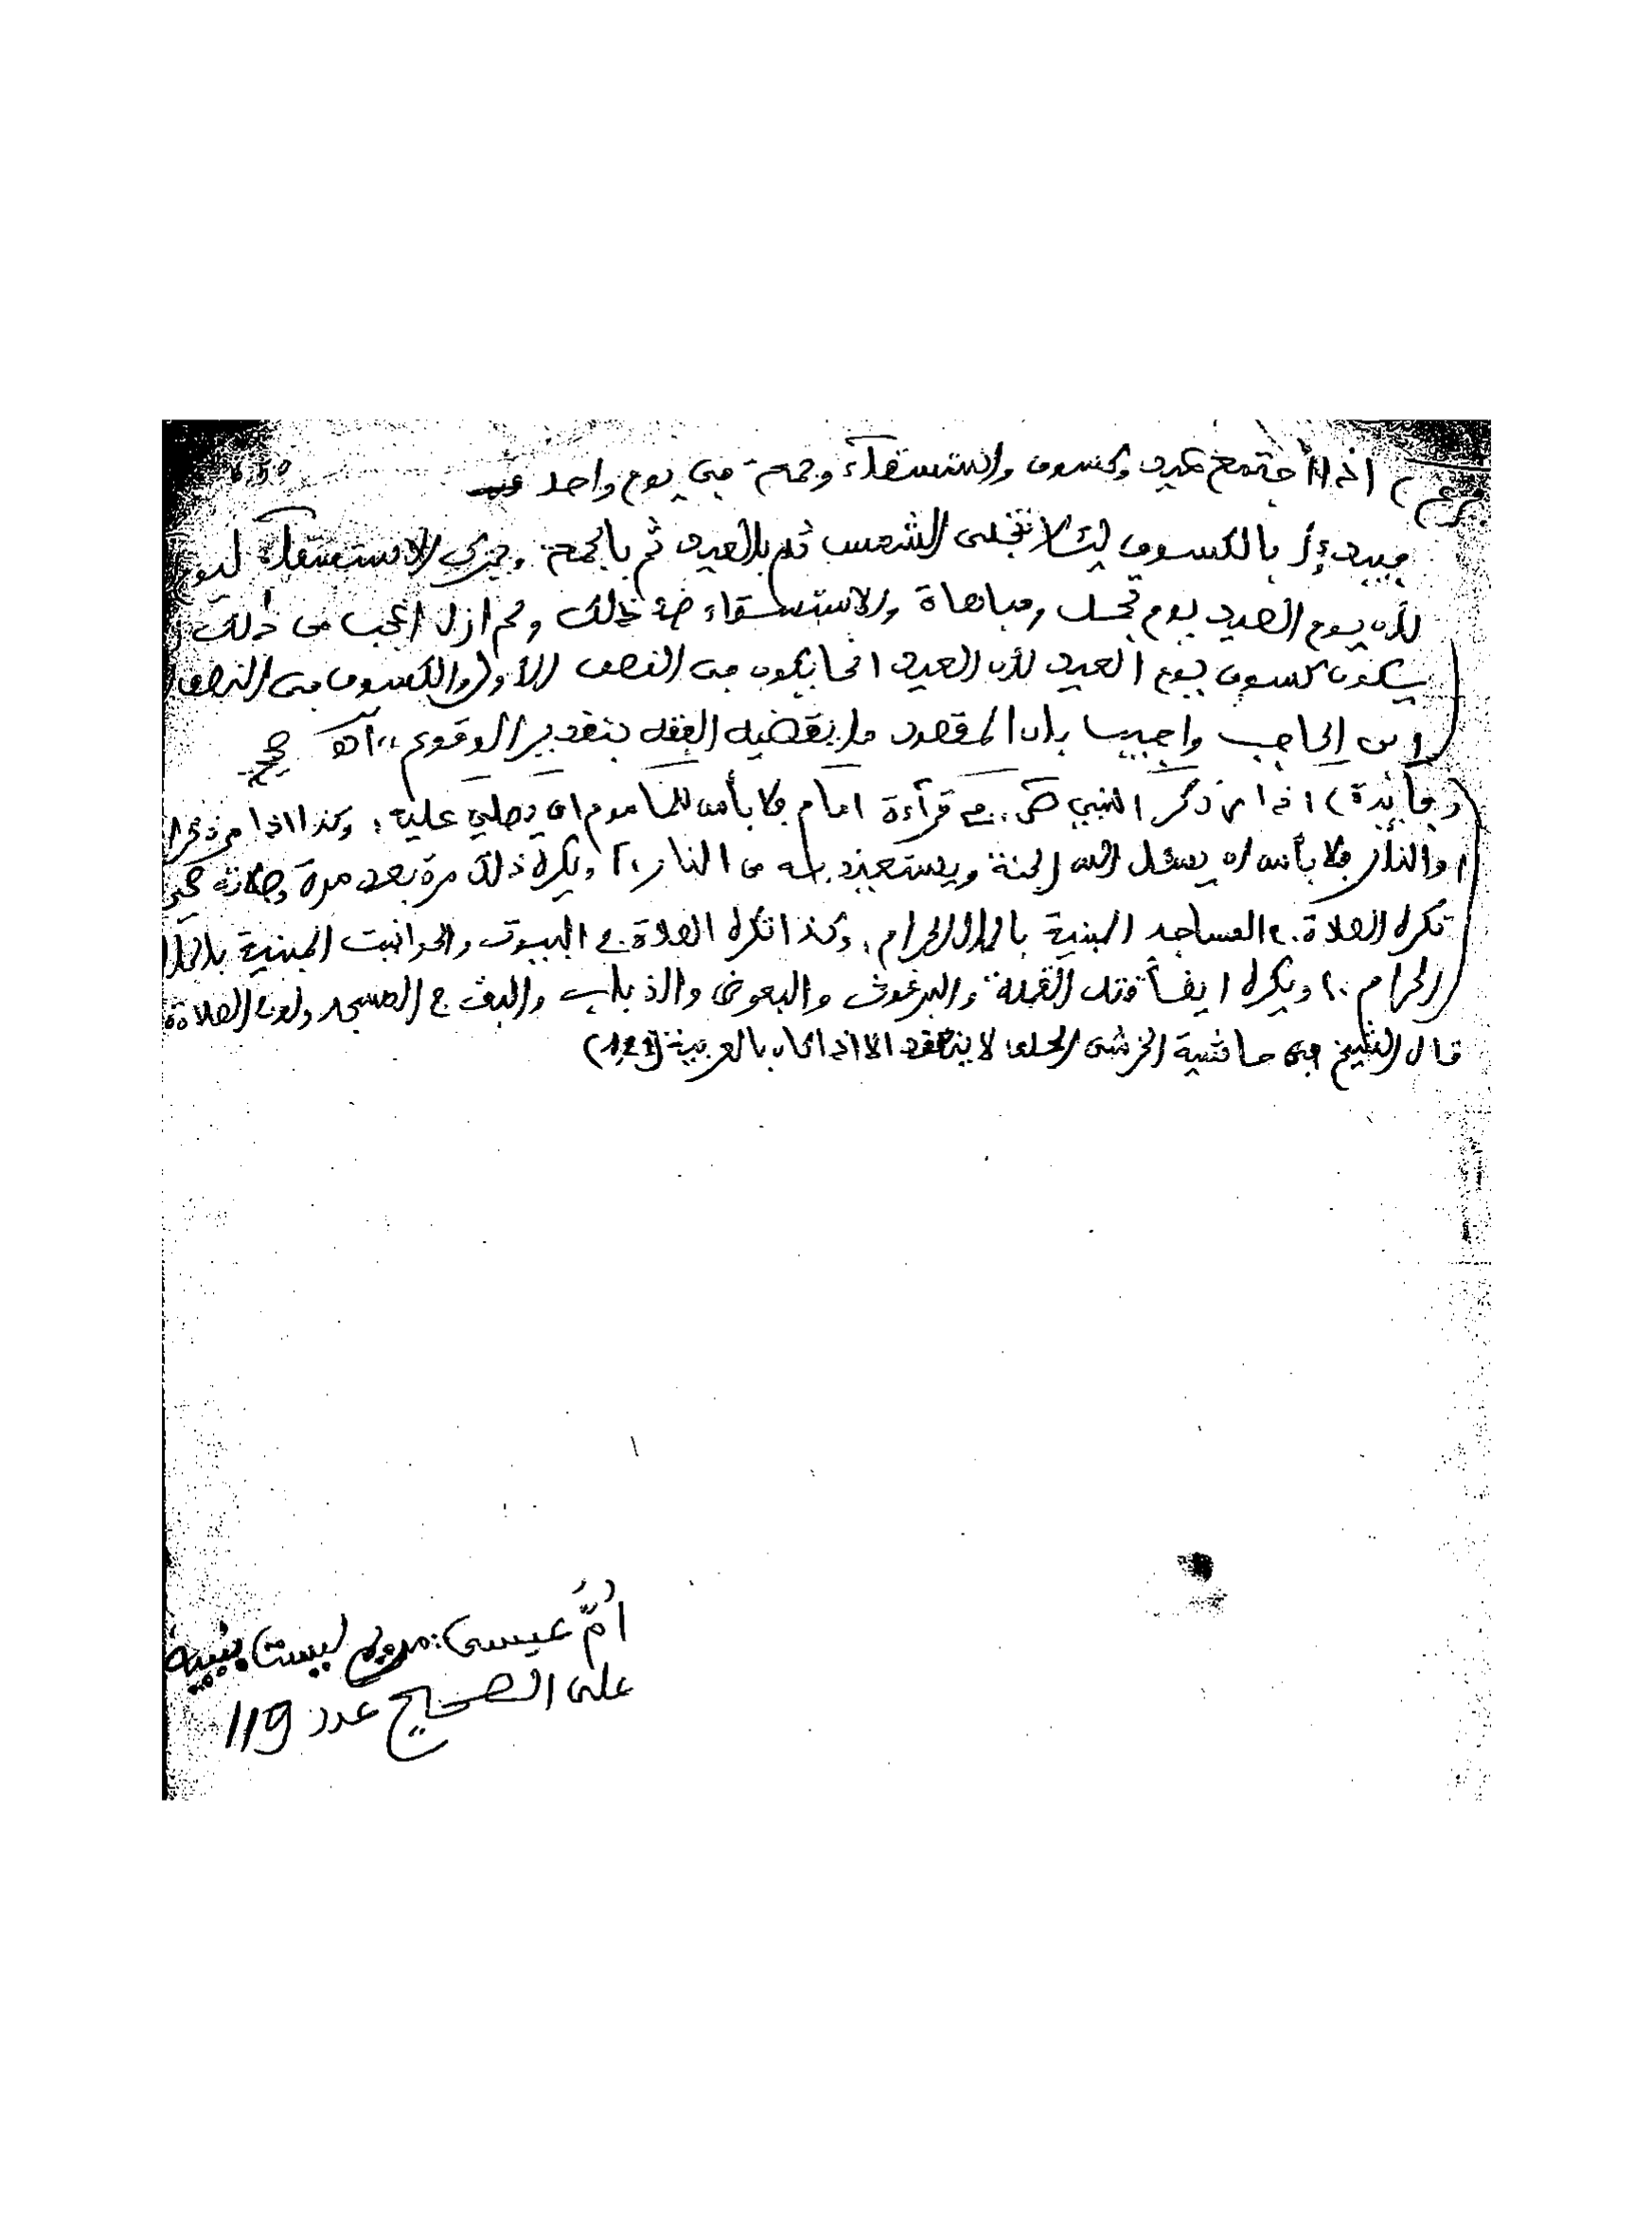 فرع) اذا اجتمع عيد وكسوف واستسقاء وجمعة في يوم واحد
فيبدأ بالكسوف ليئلا تنجلى الشمس ثم بالعيد ثم بالجمعة ويترك الاستسقاء ليوم
لأن يوم العيد يوم تجمل ومباهاة والاستسقاء ضد ذالك ولم ازل اعجب من ذلك
يكون كسوف يوم العيد لأن العيد انما يكون في النصف الأول والكسوف في النصف
ابن الحاجب واجيب بان المقصود ما يقتضيه الفقه بتقدير الوقوع،، آه
(فائدة) اذا مر ذكر النبي في قرآءة امام فلا بأس للماموم ان يصلي عليه، وكذا اذا مر ذكر
والنار فلا بأس ان يسئل الله الجنة ويستعيذ به من النار،، ويكره ذلك مرة بعد مرة
تكره الصلاة في المساجد المبنية بالمال الحرام، وكذا تكره الصلاة في البيوت والحوانيت المبنية بالمال
الحرام،، ويكره ايضا قتل القملة والبرغوث والبعوض والذباب والبق في المسجد ولو في الصلاة
قال الشيخ في حاشية الخرشى لا ينعقد الا اذا كان بالعربية
اُمَّ عيسى: مريم ليست بنبية
على الصحيح عدد 119